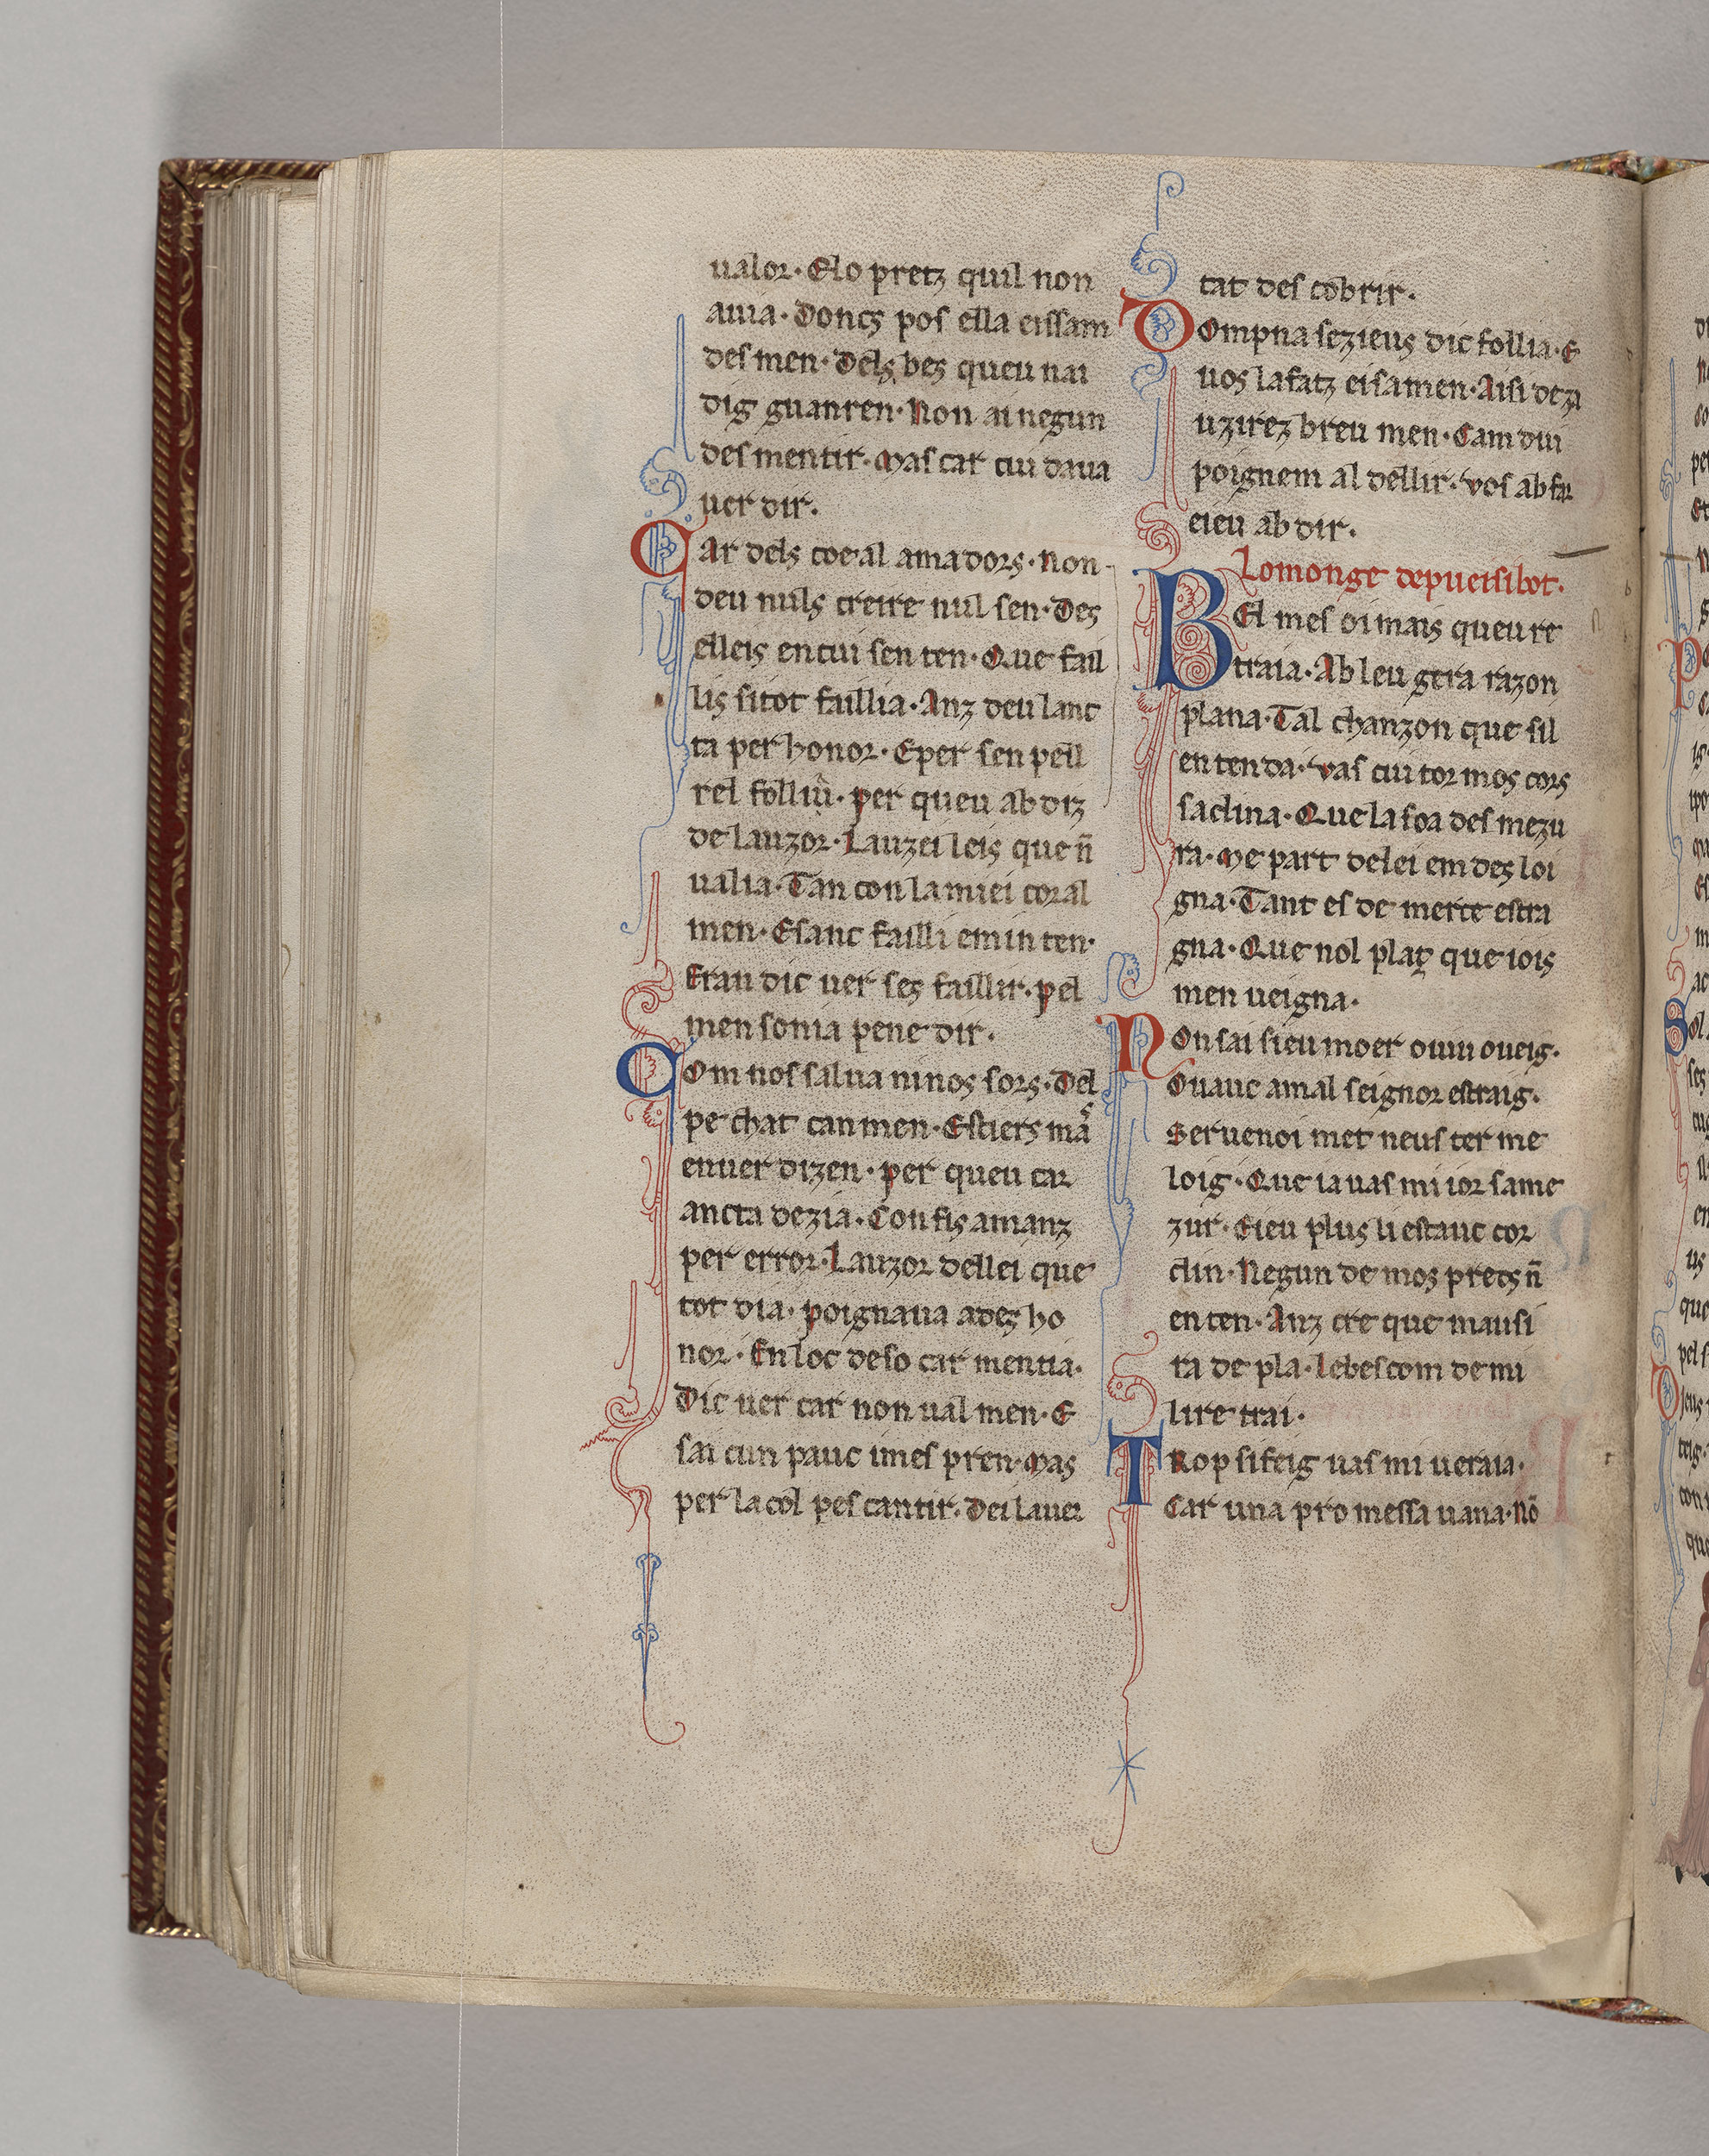 ualor· Elo pretz quil non
auia· Doncs pos ella eissam
des men· Dels bes queu nai
dig guanren· Non ai negun
des mentir· Mas car cui daua
uer dir·
Car dels coe al ama dors· Non
deu nuls creire nul sen· Des
elleis en cui sen ten· Que fail
lis sitot faillia· Anz deu lanc
ta per honor· Eper sen pell
rel per queu ab diz
de lauzor· Lauzei leis que n̄
ualia· Tan con la miei coral
men· Esanc failli emin ten·
Erau dic uer ses faillir· pel
men sonia pene dir·
Com nos salua ninos sors· Del
pe chat can men· Estiers
enuer dizen· per queu car
ancta dezia· Con fis amanz
per error· Lauzor dellei que
tot dia· poignaua ades ho
nor· En loc de so car mentia·
Dic uer car non ual men· E
sai cun pauc imes pren· Mas
per la col pes cantir· Dei lauer
tat des cobrir·
Dompna sezieus dic follia· E
uos lafatz eisamen· Aisi deza
uzirez breu men· Cam dui
poignem al dellir· vos ab far
eieu ab dir·
Lo monge depueisibot·
BEl mes oimais queu re
traia· Ab leu gera razon
plana· Tal chanzon que sil
en tenda· vas cui tor mos cors
saclina· Que la soa des mezu
ra· Me part delei em des loi
gna· Tant es de merce estra
gna· Que nol plaz que iois
men ueigna·
Non sai sieu moer ouiu oueig·
Ouauc amal seignor estraig·
Ser uenoi met neus ter me
loig· Que ia uas mi ior same
zur· Eieu plus li estauc cor
clin· Negun de mos precs n̄
en ten· Anz cre que mausi
ra de pla· Lebescom de mi
lire trai·
TRop si feig uas mi ueraia·
Car una pro messa uana· Nō